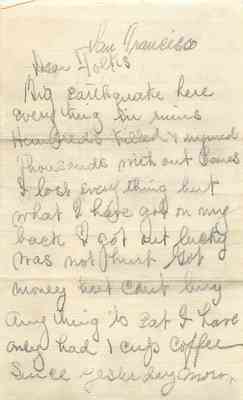 San Francisco
Dear Folks
Big Earthquake here
everything in ruins
Hundreds Killed & injured
Thousands without Homes
I lost every thing but
what I have got on my
back I got out lucky
was not hurt. Got
money but cant buy
Any thing to Eat I have
only had 1 cup Coffee
Since yesterday morn,